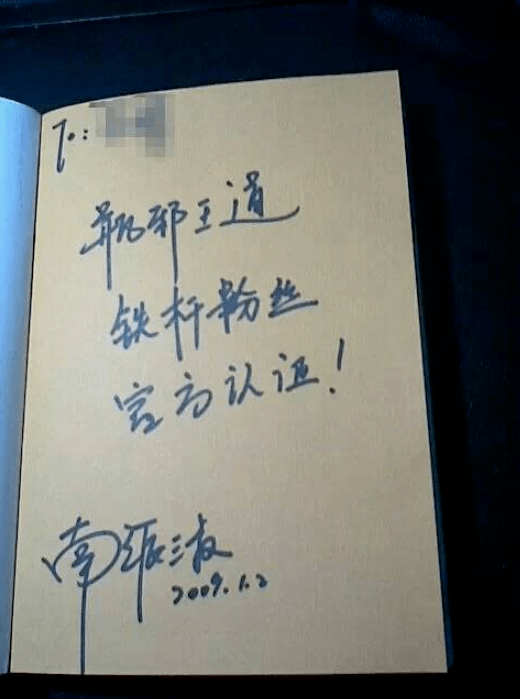 To:
瓶邪王道
铁杆粉丝
官方认证!
南派三叔
2009.1.2